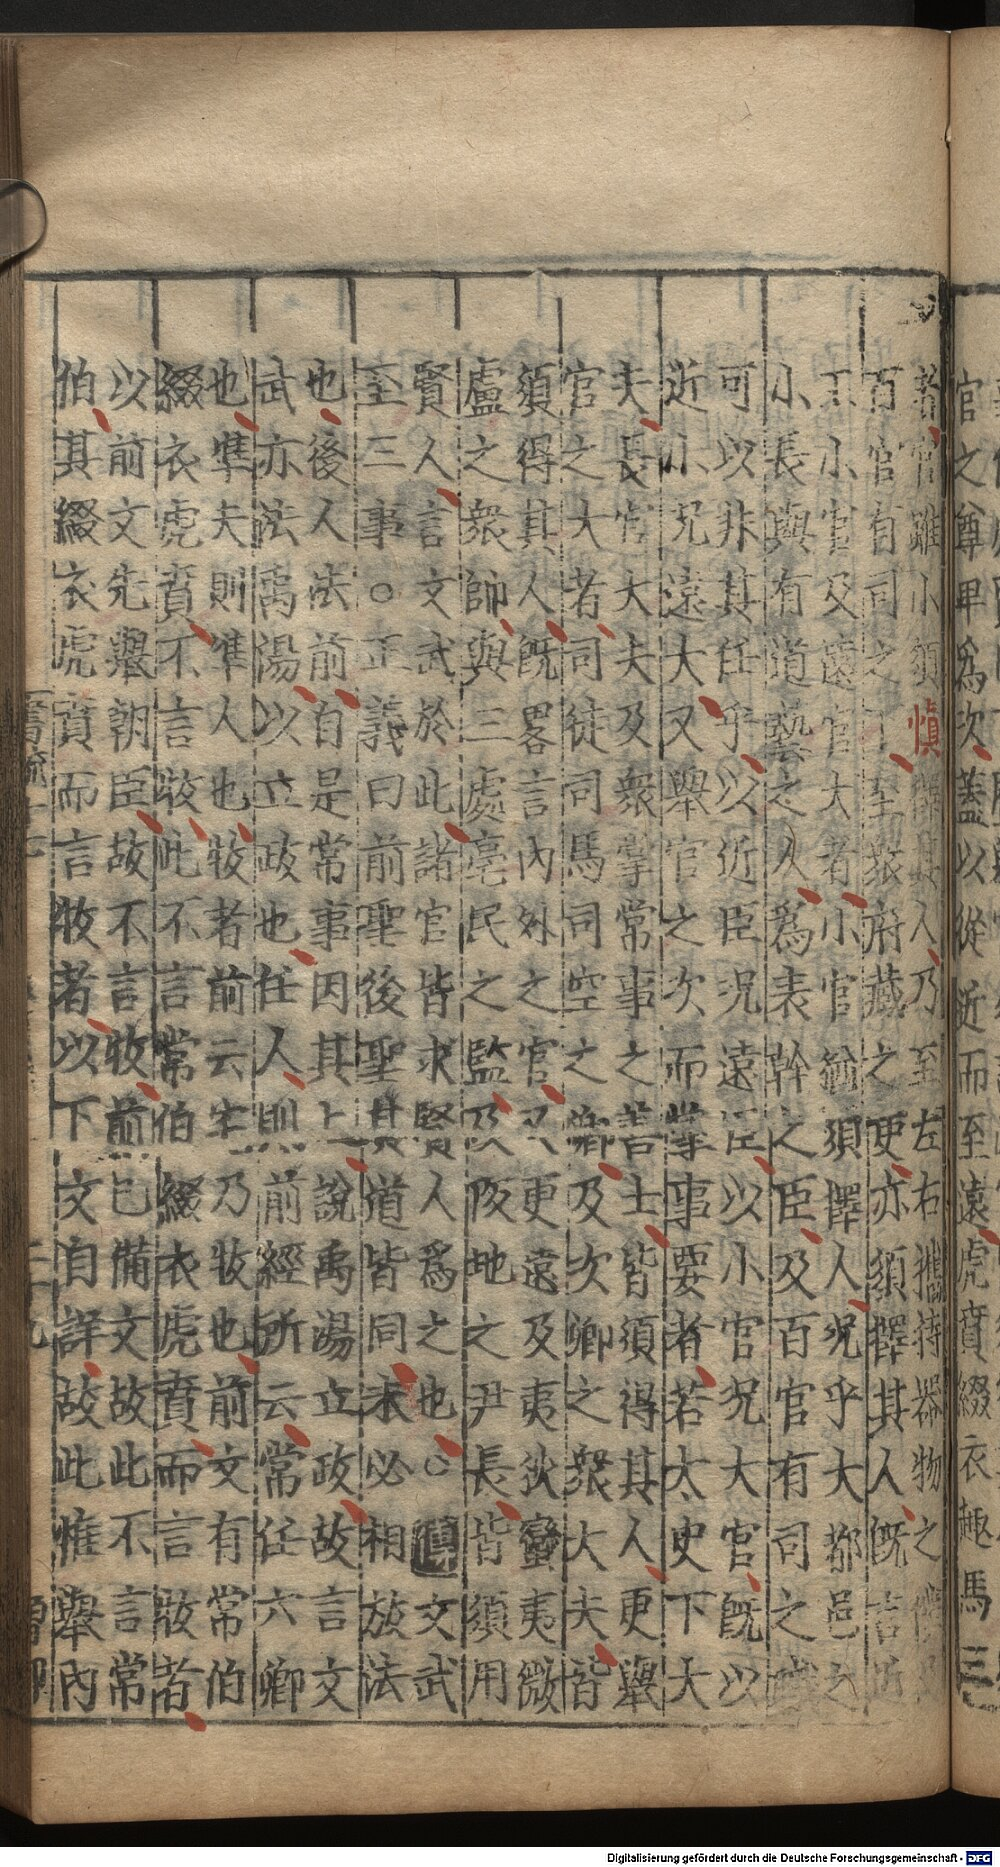 者官雖小須慎擇其人乃至左右攜持器物之僕
百官有司之下至於府藏之吏亦須擇其人旣言近
王小官及遠官大者小官猶須擇人況乎大都邑之
小長與有道藝之人爲表幹之臣及百官有司之職
可以非其任乎以近臣況遠臣以小官況大官旣以
近小況遠大又舉官之次而掌事要者若太史下大
夫長官大夫及衆掌常事之善士皆須得其人更舉
官之大者司徒司馬司空之卿及次卿之衆大夫皆
須得其人旣畧言內外之官又更遠及夷狄蠻夷微
盧之衆帥與三處亳民之監及阪地之尹長皆須用
賢人言文武於此諸官皆求賢人爲之也○傳文武
至三事○正義曰前聖後聖其道皆同未必相放法
也後人法前自是常事因其上說禹湯立政故言文
武亦法禹湯以立政也任人則前經所云常任六卿
也準夫則準人也牧者前云宅乃牧也前文有常伯
綴衣虎賁不言故此不言常伯綴衣虎賁而言牧者
以前文先舉朝臣故不言牧前已備文故此不言常
伯其綴衣虎賁而言牧者以下文自詳故此惟舉內
官之尊卑爲次蓋以從近而至遠虎賁綴衣趣馬三
Digitalisierung gefördert durch die Deutsche Forschungsgemeinschaft - DFG